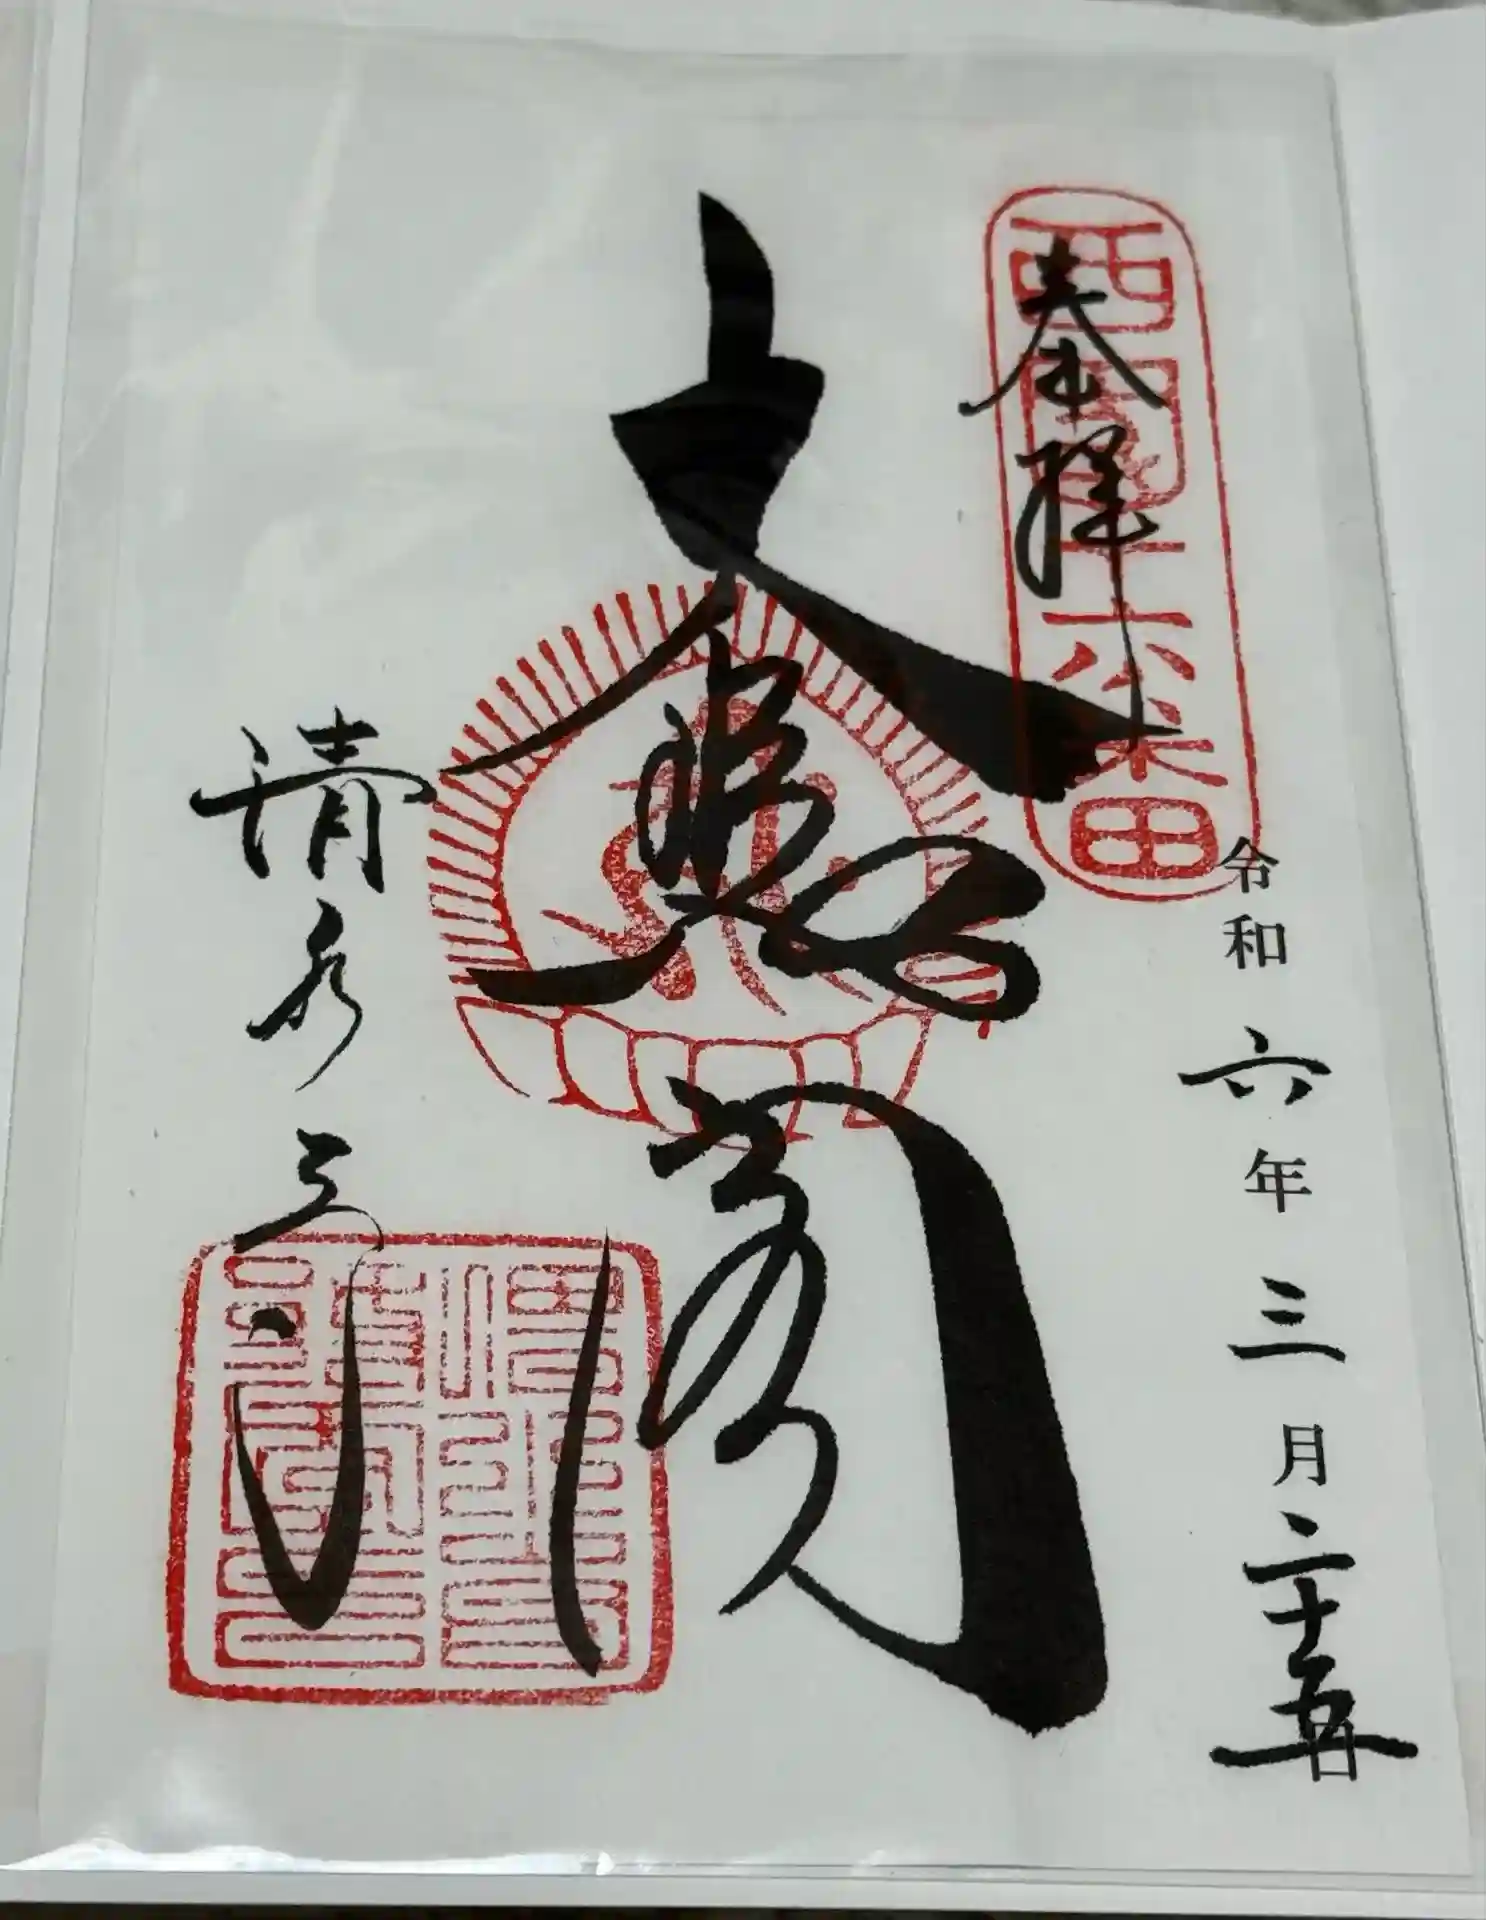 令和六年三月二十五日
奉拝
西國十六番
大悲閣
清水寺